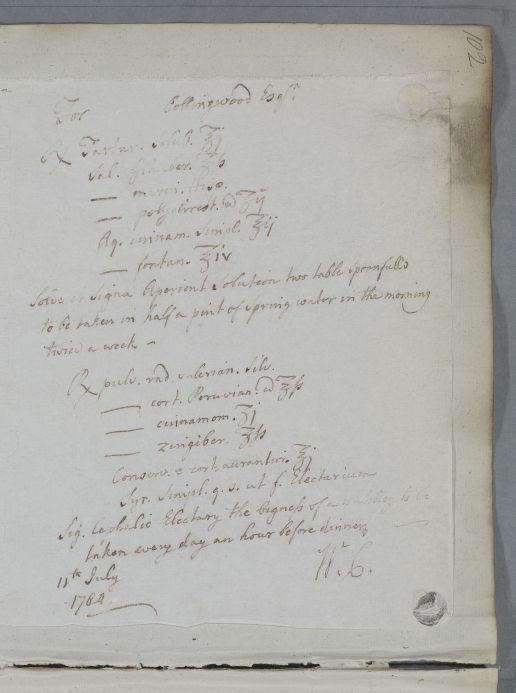 102
For Collingwood Esqr.
℞ Tartar. solub. ℥j
Sal. Glauber. ℥ß
— marin. Hisp.
— polychrest. a ʒij
Aq. cinnam. simpl. ℥ij
— fontan. ℥iv
Solve et Signa Aperient Solution two table spoonfulls
to be taken in half a pint of spring water in the morning
twice a week —
℞ pulv. rad. valerian. silv.
— cort. Peruvian. a ℥ß
— cinnamom. ʒj
— zingiber. ʒß
Conserv. e cort. aurantior. ℥j
Syr. simpl. q. s. ut f. Electarium
Sig. Cephalic Electary the bigness of a to be
taken every day an hour before dinner
Wm. C.
11th July
1784